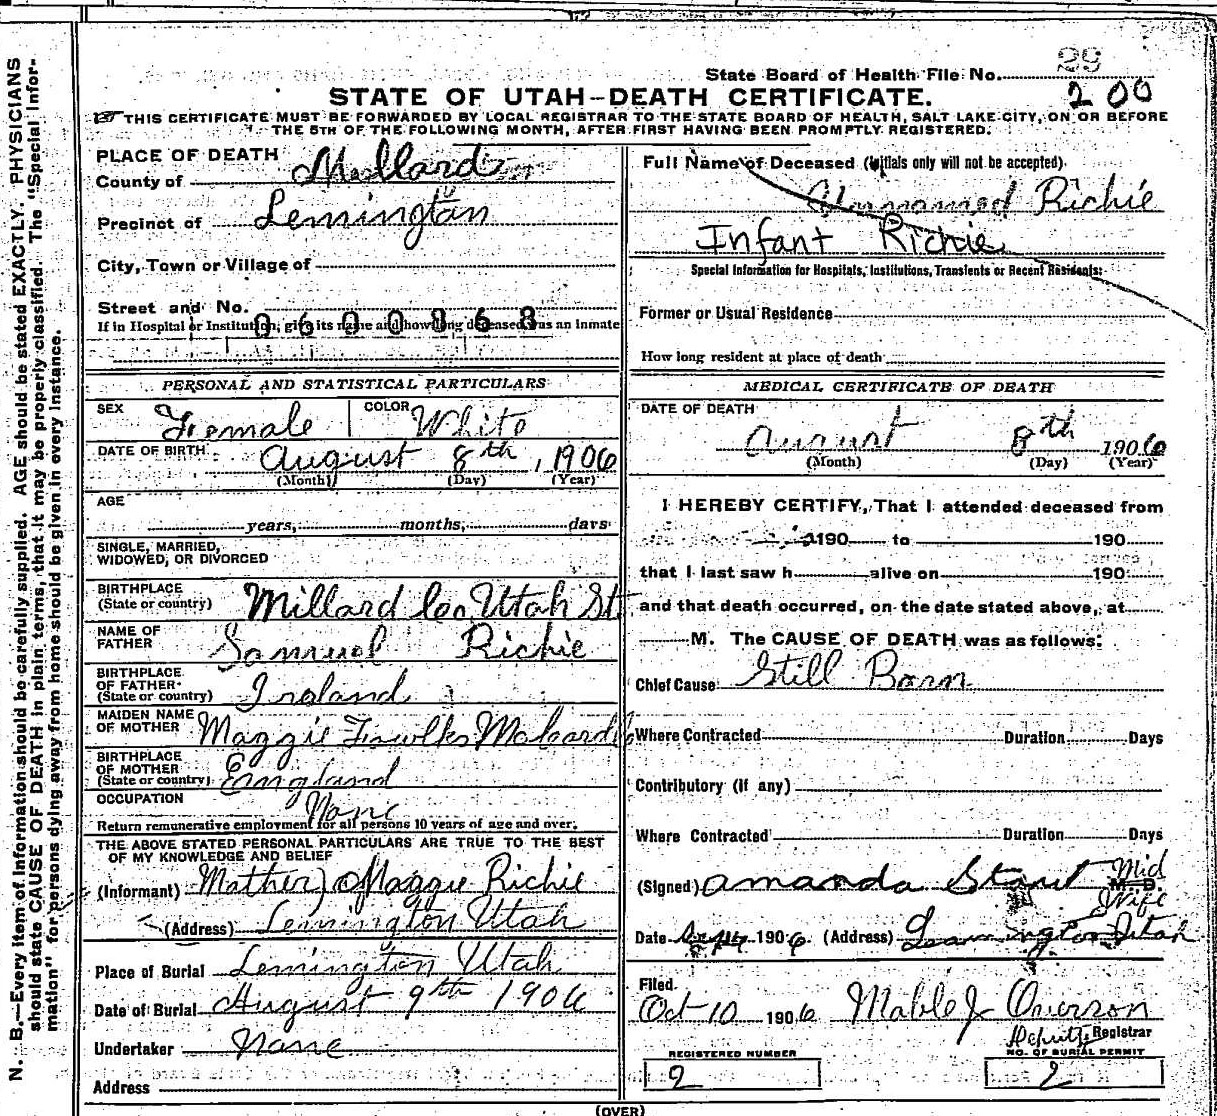 N. B.—Every item of Information should be carefully supplied. AGE should be stated EXACTLY. PHYSICIANS
should state CAUSE OF DEATH in plain terms, that it may be properly classified. The "Special Infor-
mation" for persons dying away from home should be given in every instance.
29
State Board of Health File No.
200
STATE OF UTAH—DEATH CERTIFICATE.
THIS CERTIFICATE MUST BE FORWARDED BY LOCAL REGISTRAR TO THE STATE BOARD OF HEALTH, SALT LAKE CITY, ON OR BEFORE
THE 5TH OF THE FOLLOWING MONTH, AFTER FIRST HAVING BEEN PROMPTLY REGISTERED.
PLACE OF DEATH
County of Millard
Precinct of Lemington
City, Town or Village of
Street and No.
If in Hospital or Institution, give its name and how long deceased was an inmate
0600868
PERSONAL AND STATISTICAL PARTICULARS
SEX Female COLOR White
DATE OF BIRTH August 8th, 1906
(Month) (Day) (Year)
AGE
years, months, days
SINGLE, MARRIED,
WIDOWED, OR DIVORCED
BIRTHPLACE
(State or country) Millard Co. Utah St
NAME OF
FATHER Samuel Richie
BIRTHPLACE
OF FATHER
(State or country) Ireland
MAIDEN NAME
OF MOTHER Maggie
BIRTHPLACE
OF MOTHER
(State or country) England
OCCUPATION None
Return remunerative employment for all persons 10 years of age and over.
THE ABOVE STATED PERSONAL PARTICULARS ARE TRUE TO THE BEST
OF MY KNOWLEDGE AND BELIEF
(Informant) Mother) Maggie Richie
(Address) Lemington Utah
Place of Burial Lemington, Utah
Date of Burial August 9th 1906
Undertaker None
Address
Full Name of Deceased (Initials only will not be accepted).
Unnamed Richie
Infant Richie
Special Information for Hospitals, Institutions, Transients or Recent Residents:
Former or Usual Residence
How long resident at place of death
MEDICAL CERTIFICATE OF DEATH
DATE OF DEATH
August 8th 1906
(Month) (Day) (Year)
I HEREBY CERTIFY, That I attended deceased from
190 to 190
that I last saw h alive on 190
and that death occurred, on the date stated above, at
M. The CAUSE OF DEATH was as follows:
Chief Cause Still Born
Where Contracted Duration Days
Contributory (if any)
Where Contracted Duration Days
(Signed) Amanda Stout Mid
M. D.
Wife
Date 1906 (Address) Leamington Utah
Filed
Oct 10 1906 Mable J Overson
Deputy Registrar
REGISTERED NUMBER
2
NO. OF BURIAL PERMIT
2
(OVER)